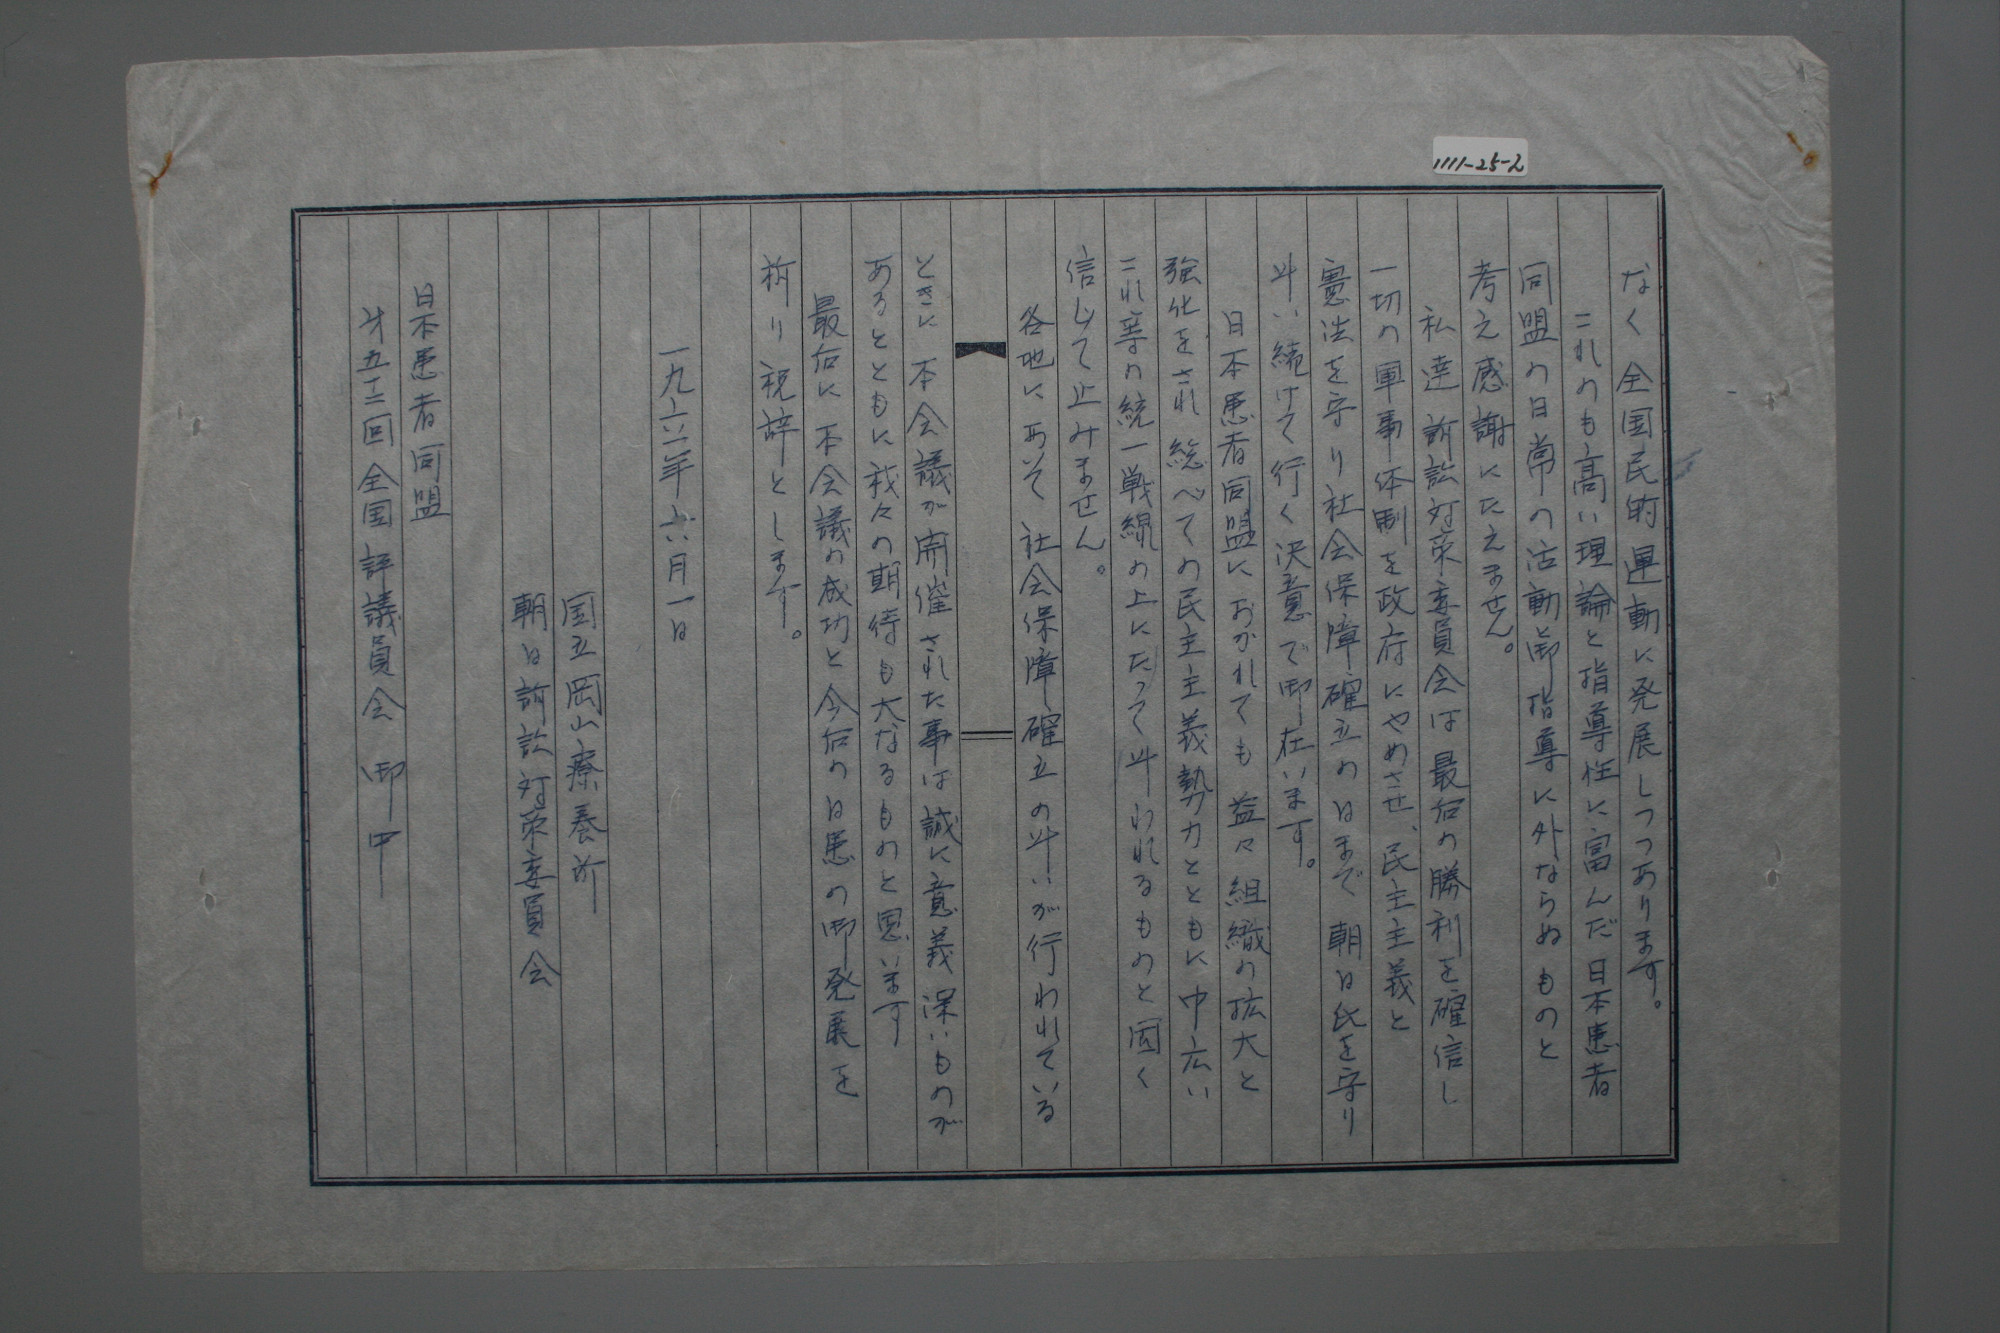 1111-25-2
なく全国民的運動に発展しつつあります。
これのも高い理論と指導性に富んだ日本患者
同盟の日常の活動御指導に外ならぬものと
考え感謝にたえません。
私達訴訟対策委員会は最后の勝利を確信し
一切の軍事体制を政府にやめさせ、民主主義と
憲法を守り社会保障確立の日まで朝日氏を守り
斗い続けて行く決意で御在います。
日本患者同盟におかれても益々組織の拡大と
強化をされ総べての民主主義勢力とともに中広い
これ等の統一戦線の上にたって斗われるものと固く
信じて止みません。
各地において社会保障確立の斗いが行われている
ときに本会議が開催された事は誠に意義深いものが
あるとともに我々の期待も大なるものと思います
最后に本会議の成功と今后の日患の御発展を
祈り祝辞とします。
一九六二年六月一日
国立岡山療養所
朝日訴訟対策委員会
日本患者同盟
才五十二回全国評議員会御中